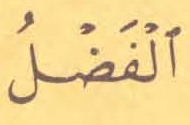 اَلْفَضْلُ